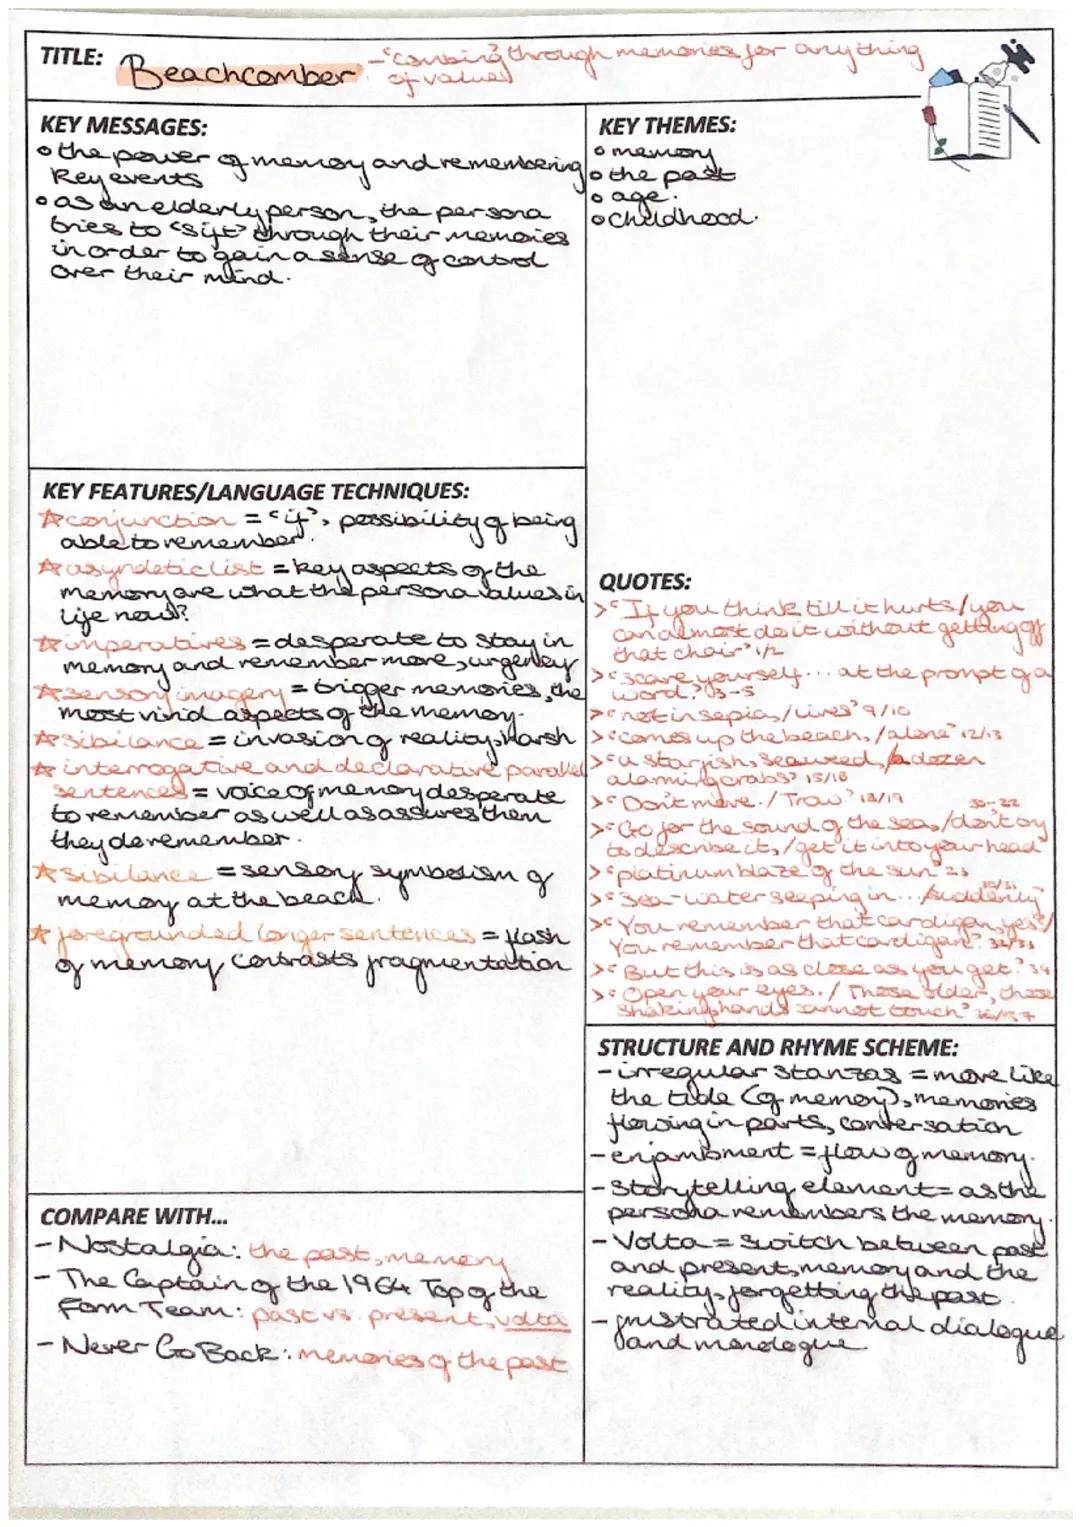 TITLE: Beachcomber - 'combing' through memories for anything
of value
KEY MESSAGES:
• the power of memory and remembering
key events
• as an elderly person, the persona
tries to 'sift' through their memories
in order to gain a sense of control
over their mind.
KEY THEMES:
• memory
• the past
• age.
• childhood.
KEY FEATURES/LANGUAGE TECHNIQUES:
☆ conjunction = 'if', possibility of being
able to remember.
☆ asyndetic list = key aspects of the
memory are what the persona values in
life now?
☆ imperatives = desperate to stay in
memory and remember more, urgency
☆ sensory imagery = trigger memories, the
most vivid aspects of the memory.
☆ sibilance = invasion of reality, harsh
☆ interrogative and declarative parallel
sentences = voice of memory desperate
to remember as well as assures them
they do remember.
☆ sibilance = sensory symbolism of
memory at the beach.
☆ foregrounded longer sentences = flash
of memory, contrasts fragmentation
QUOTES:
> 'If you think till it hurts/you
can almost do it without getting off
that chair' 1/2
> 'scare yourself... at the prompt of a
word.' 3-5
> 'not in sepia,/lives' 9/10
> 'comes up the beach,/alone' 12/13
> 'a starfish, seaweed, a dozen
alarming crabs' 15/16
> 'Don't move./Trow.' 18/19
> 'Go for the sound of the sea,/don't try
to describe it,/get it into your head' 20-22
> 'platinum blaze of the sun' 23
> 'sea-water seeping in... /suddenly' 30/31
> 'You remember that cardigan, yes?/
You remember that cardigan.' 32/33
> 'But this is as close as you get.' 34
> 'Open your eyes./Those older, those
shaking hands cannot touch' 36/37
STRUCTURE AND RHYME SCHEME:
- irregular stanzas = move like
the tide (of memory), memories
flowing in parts, conversation
- enjambment = flow of memory.
- Storytelling element = as the
persona remembers the memory.
- Volta = switch between past
and present, memory and the
reality, forgetting the past.
- frustrated internal dialogue
and monologue
COMPARE WITH...
- Nostalgia: the past, memory
- The Captain of the 1964 Top of the
Form Team: past vs. present, volta
- Never Go Back: memories of the past